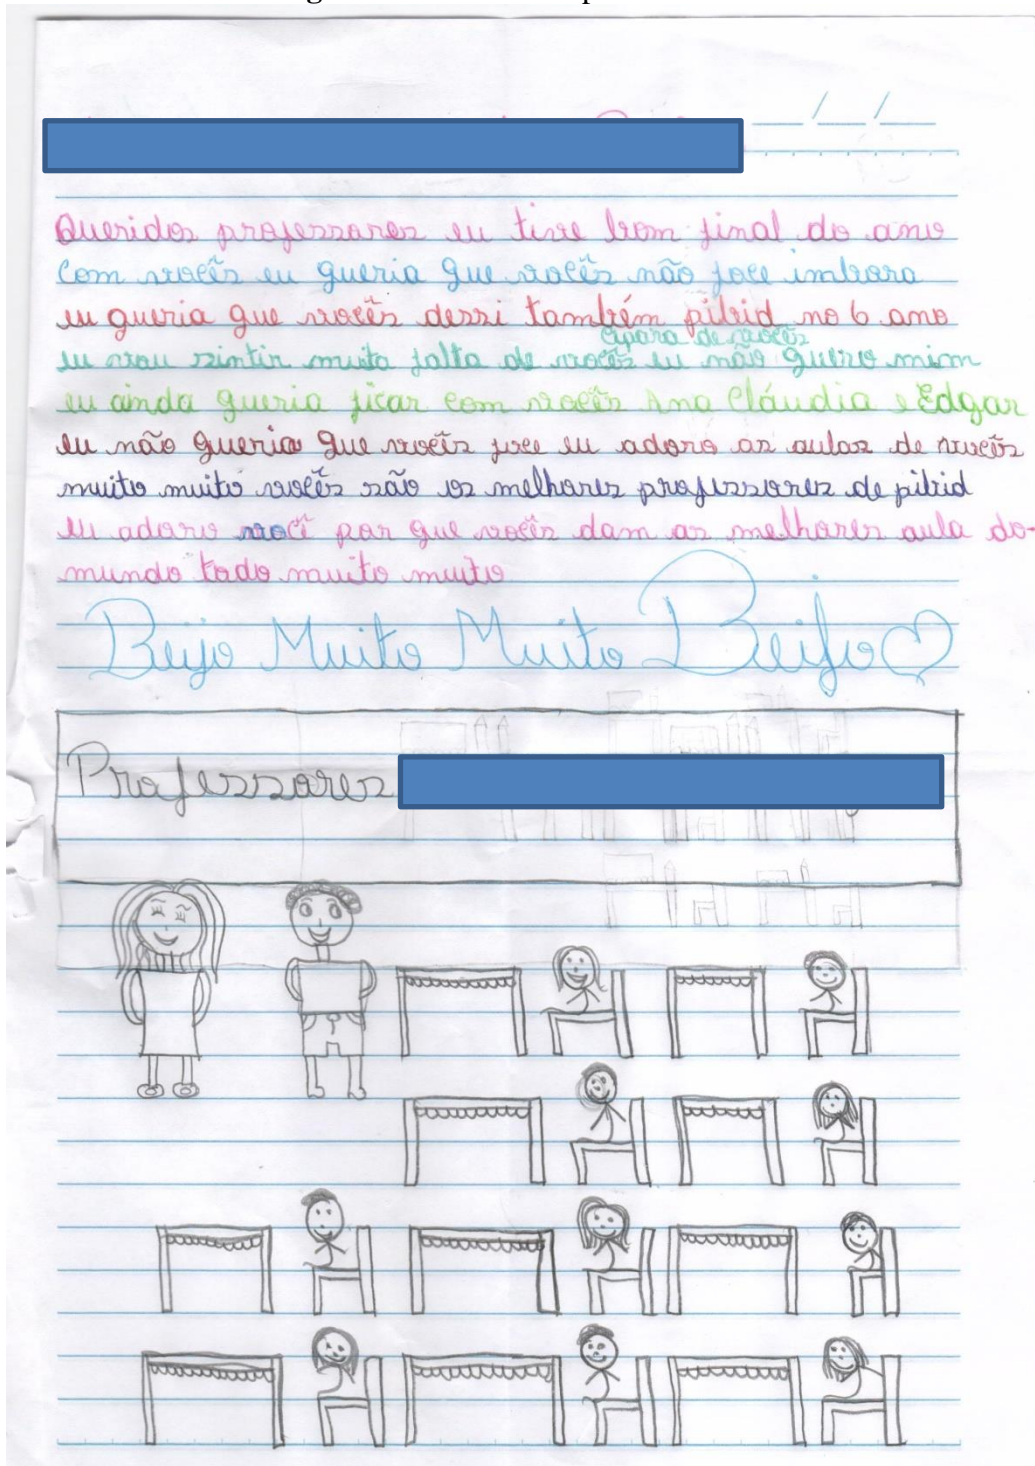 Queridos professores eu tive bom final do ano
Com vocês eu queria que vocês não foce imbora
eu queria que vocês dessi também pibid no 6 ano
cipara de vocês
eu vou sintir muita falta de vocês eu não quero mim
eu ainda queria ficar com vocês Ana Cláudia e Edgar
eu não queria que vocês foce eu adoro as aulas de vocês
muito muito vocês são os melhores professores de pibid
eu adoro você por que vocês dam as melhores aula do-
mundo todo muito muito
Beijo Muito Muito Beijo
Professores